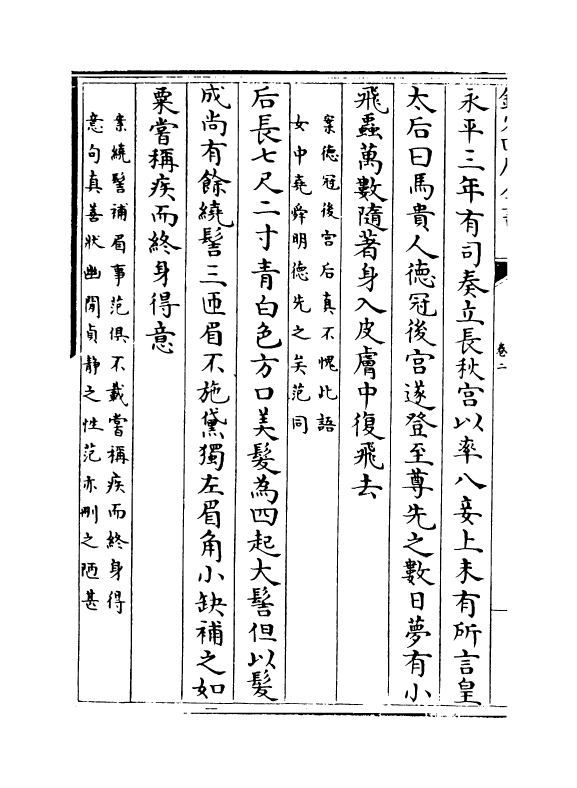 欽定四庫全書
卷二
永平三年有司奏立長秋宮以率八妾上未有所言皇
太后曰馬貴人德冠後宮遂登至尊先之數日夢有小
飛蟲萬數隨著身入皮膚中復飛去
案德冠後宮后真不愧此語
女中堯舜明德先之矣范同
后長七尺二寸青白色方口美髮為四起大髻但以髮
成尚有餘繞髻三匝眉不施黛獨左眉角小缺補之如
粟嘗稱疾而終身得意
案繞髻補眉事范俱不載嘗稱疾而終身得
意句真善狀幽閒貞靜之性范亦刪之陋甚